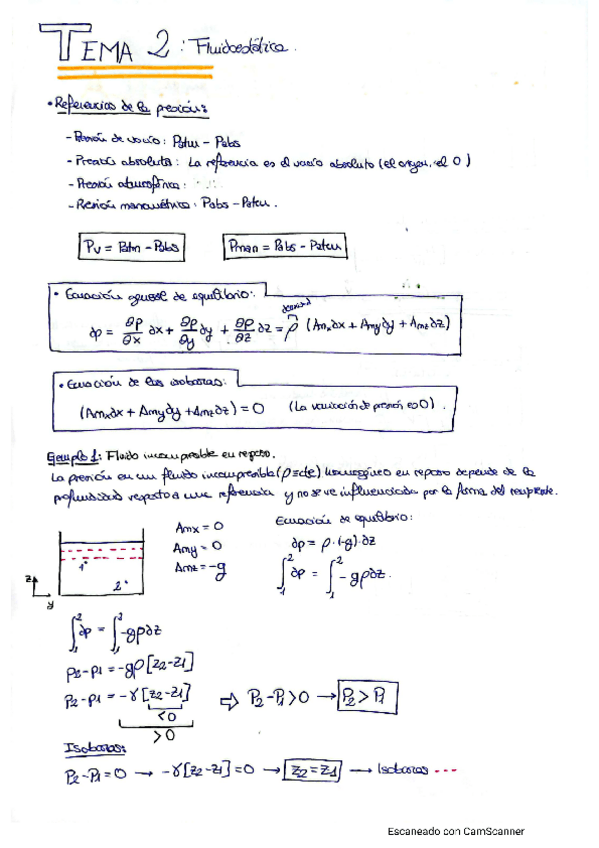 TEMA 2: Fluidoestática.
• Referencias de la presión:
- Presión de vacío: Patm - Pabs
- Presión absoluta: La referencia es el vacío absoluto (el origen, el 0)
- Presión atmosférica:
- Presión manométrica: Pabs - Patm.
Pv = Patm - Pabs
Pman = Pabs - Patm
• Ecuación general de equilibrio:
densidad
∂p = ∂p/∂x ∂x + ∂p/∂y ∂y + ∂p/∂z ∂z = ρ (Amx∂x + Amy∂y + Amz∂z)
• Ecuación de las isobaras:
(Amx∂x + Amy∂y + Amz∂z) = 0 (La variación de presión es 0).
Ejemplo 1: Fluido incompresible en reposo.
La presión en un fluido incompresible (ρ=cte) homogéneo en reposo depende de la
profundidad respecto a una referencia y no se ve influenciada por la forma del recipiente.
Amx = 0
Amy = 0
Amz = -g
Ecuación de equilibrio:
∂p = ρ·(-g)·∂z
∫₁² ∂p = ∫₁² -gρ∂z.
1
2
z
y
∫₁² ∂p = ∫₁² -gρ∂z
P2-P1 = -gρ[z2-z1]
P2-P1 = -γ[z2-z1] ⇨ P2-P1>0 → P2>P1
<0
>0
Isobaras:
P2-P1=0 → -γ[z2-z1]=0 → z2=z1 → Isobaras ---
Escaneado con CamScanner